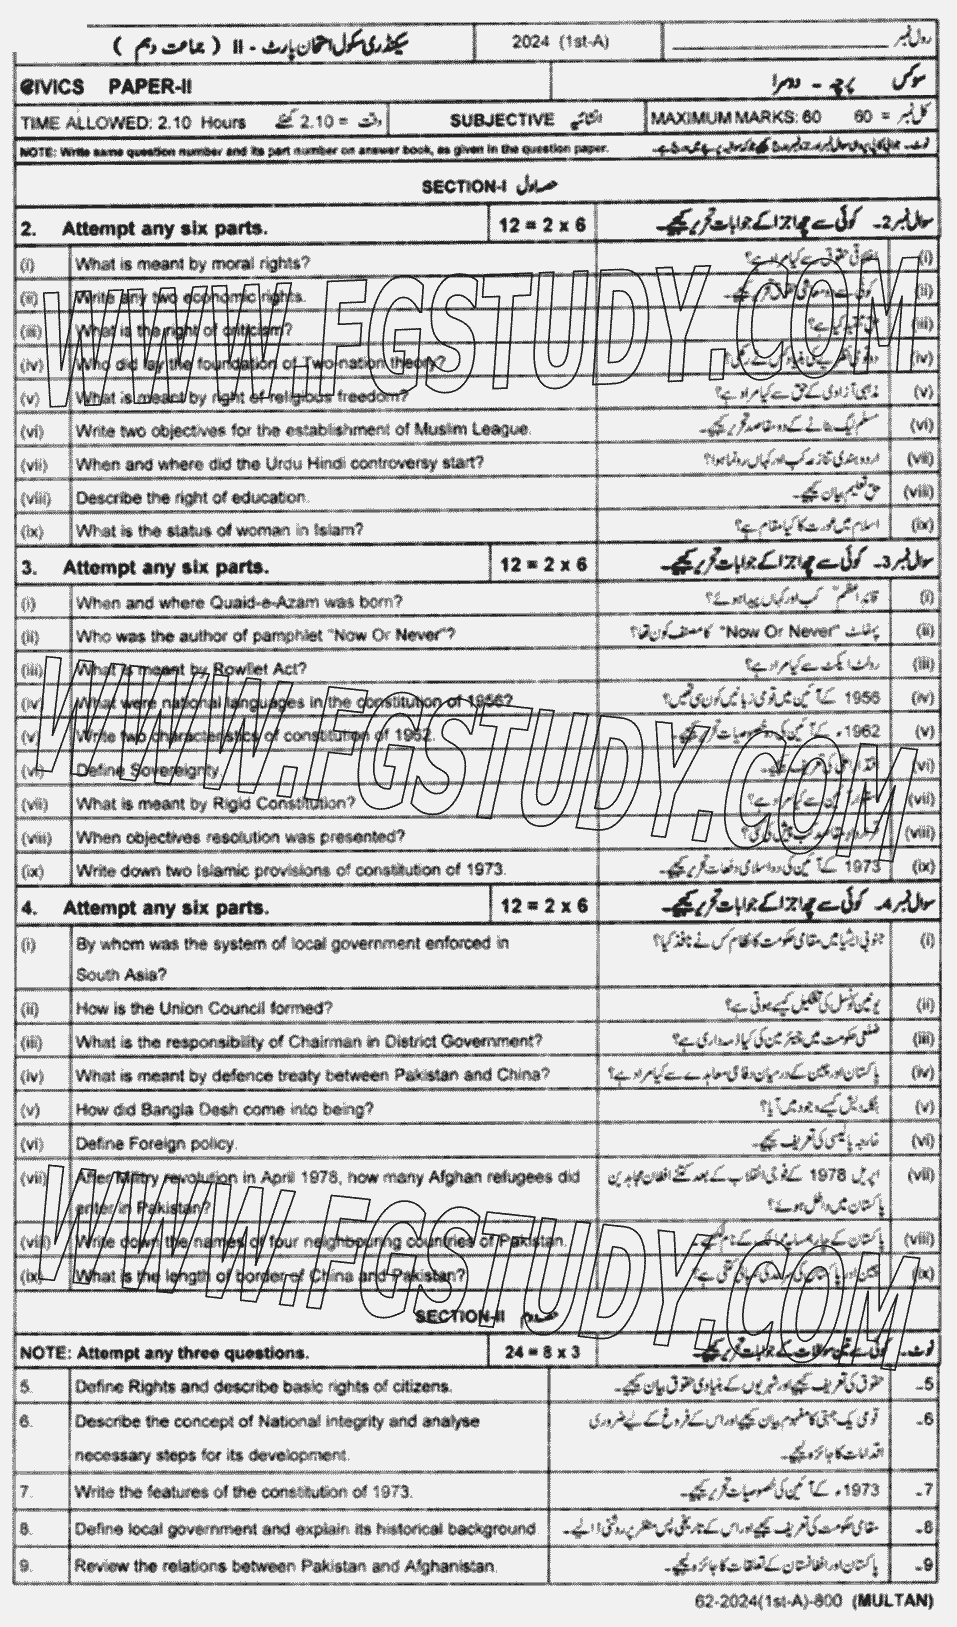 سیکنڈری سکول امتحان پارٹ - II ( جماعت دہم ) 2024 (1st-A) رول نمبر
CIVICS PAPER-II سوکس پرچہ - دوسرا
TIME ALLOWED: 2.10 Hours وقت = 2.10 گھنٹے SUBJECTIVE انشائیہ MAXIMUM MARKS: 60 کل نمبر = 60
NOTE: Write same question number and its part number on answer book, as given in the question paper.
SECTION-I حصہ اول
2. Attempt any six parts. 12 = 2 x 6 سوال نمبر 2۔ کوئی سے چھ اجزا کے جوابات تحریر کیجیے۔
(i) What is meant by moral rights? اخلاقی حقوق سے کیا مراد ہے؟ (i)
(ii) Write any two economic rights. کوئی سے دو معاشی حقوق تحریر کیجیے۔ (ii)
(iii) What is the right of criticism? حق تنقید کیا ہے؟ (iii)
(iv) Who did lay the foundation of Two-nation theory? (iv)
(v) What is meant by right of religious freedom? مذہبی آزادی کے حق سے کیا مراد ہے؟ (v)
(vi) Write two objectives for the establishment of Muslim League. مسلم لیگ بنانے کے دو مقاصد تحریر کیجیے۔ (vi)
(vii) When and where did the Urdu Hindi controversy start? اردو ہندی تنازعہ کب اور کہاں رونما ہوا؟ (vii)
(viii) Describe the right of education. حق تعلیم بیان کیجیے۔ (viii)
(ix) What is the status of woman in Islam? اسلام میں عورت کا کیا مقام ہے؟ (ix)
3. Attempt any six parts. 12 = 2 x 6 سوال نمبر 3۔ کوئی سے چھ اجزا کے جوابات تحریر کیجیے۔
(i) When and where Quaid-e-Azam was born? قائداعظم کب اور کہاں پیدا ہوئے؟ (i)
(ii) Who was the author of pamphlet "Now Or Never"? پمفلٹ "Now Or Never" کا مصنف کون تھا؟ (ii)
(iii) What is meant by Rowllet Act? رولٹ ایکٹ سے کیا مراد ہے؟ (iii)
(iv) What were national languages in the constitution of 1956? 1956 کے آئین میں قومی زبانیں کون سی تھیں؟ (iv)
(v) Write two characteristics of constitution of 1962. 1962ء کے آئین کی دو خصوصیات تحریر کیجیے۔ (v)
(vi) Define Sovereignty. اقتدار اعلیٰ کی تعریف کیجیے۔ (vi)
(vii) What is meant by Rigid Constitution? استوار آئین سے کیا مراد ہے؟ (vii)
(viii) When objectives resolution was presented? قرارداد مقاصد کب پیش کی گئی؟ (viii)
(ix) Write down two Islamic provisions of constitution of 1973. 1973 کے آئین کی دو اسلامی دفعات تحریر کیجیے۔ (ix)
4. Attempt any six parts. 12 = 2 x 6 سوال نمبر 4۔ کوئی سے چھ اجزا کے جوابات تحریر کیجیے۔
(i) By whom was the system of local government enforced in جنوبی ایشیا میں مقامی حکومت کا نظام کس نے نافذ کیا؟ (i)
South Asia?
(ii) How is the Union Council formed? یونین کونسل کی تشکیل کیسے ہوتی ہے؟ (ii)
(iii) What is the responsibility of Chairman in District Government? ضلعی حکومت میں چیئرمین کی کیا ذمہ داری ہے؟ (iii)
(iv) What is meant by defence treaty between Pakistan and China? پاکستان اور چین کے درمیان دفاعی معاہدے سے کیا مراد ہے؟ (iv)
(v) How did Bangla Desh come into being? بنگلہ دیش کیسے وجود میں آیا؟ (v)
(vi) Define Foreign policy. خارجہ پالیسی کی تعریف کیجیے۔ (vi)
(vii) After Miltry revolution in April 1978, how many Afghan refugees did اپریل 1978 کے فوجی انقلاب کے بعد کتنے افغان مجاہدین (vii)
enter in Pakistan? پاکستان میں داخل ہوئے؟
(viii) Write down the names of four neighbouring countries of Pakistan. پاکستان کے چار ہمسایہ ممالک کے نام لکھیے۔ (viii)
(ix) What is the length of border of China and Pakistan? (ix)
SECTION-II حصہ دوم
NOTE: Attempt any three questions. 24 = 8 x 3 نوٹ۔ کوئی سے تین سوالات کے جوابات تحریر کیجیے۔
5. Define Rights and describe basic rights of citizens. حقوق کی تعریف کیجیے اور شہریوں کے بنیادی حقوق بیان کیجیے۔ 5۔
6. Describe the concept of National integrity and analyse قومی یک جہتی کا مفہوم بیان کیجیے اور اس کے فروغ کے لیے ضروری 6۔
necessary steps for its development. اقدامات کا جائزہ لیجیے۔
7. Write the features of the constitution of 1973. 1973ء کے آئین کی خصوصیات تحریر کیجیے۔ 7۔
8. Define local government and explain its historical background. مقامی حکومت کی تعریف کیجیے اور اس کے تاریخی پس منظر پر روشنی ڈالیے۔ 8۔
9. Review the relations between Pakistan and Afghanistan. پاکستان اور افغانستان کے تعلقات کا جائزہ لیجیے۔ 9۔
62-2024(1st-A)-800 (MULTAN)
WWW.FGSTUDY.COM
WWW.FGSTUDY.COM
WWW.FGSTUDY.COM